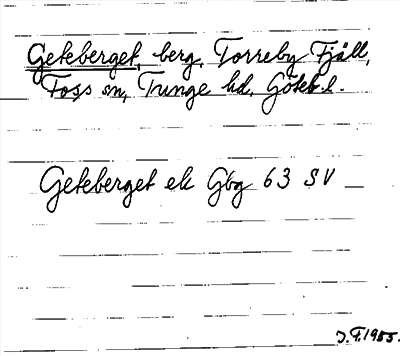 Geteberget, berg, Torreby Fjäll,
Foss sn, Tunge hd, Göteb.l.
Geteberget ek Gbg 63 SV
J.F.1955.